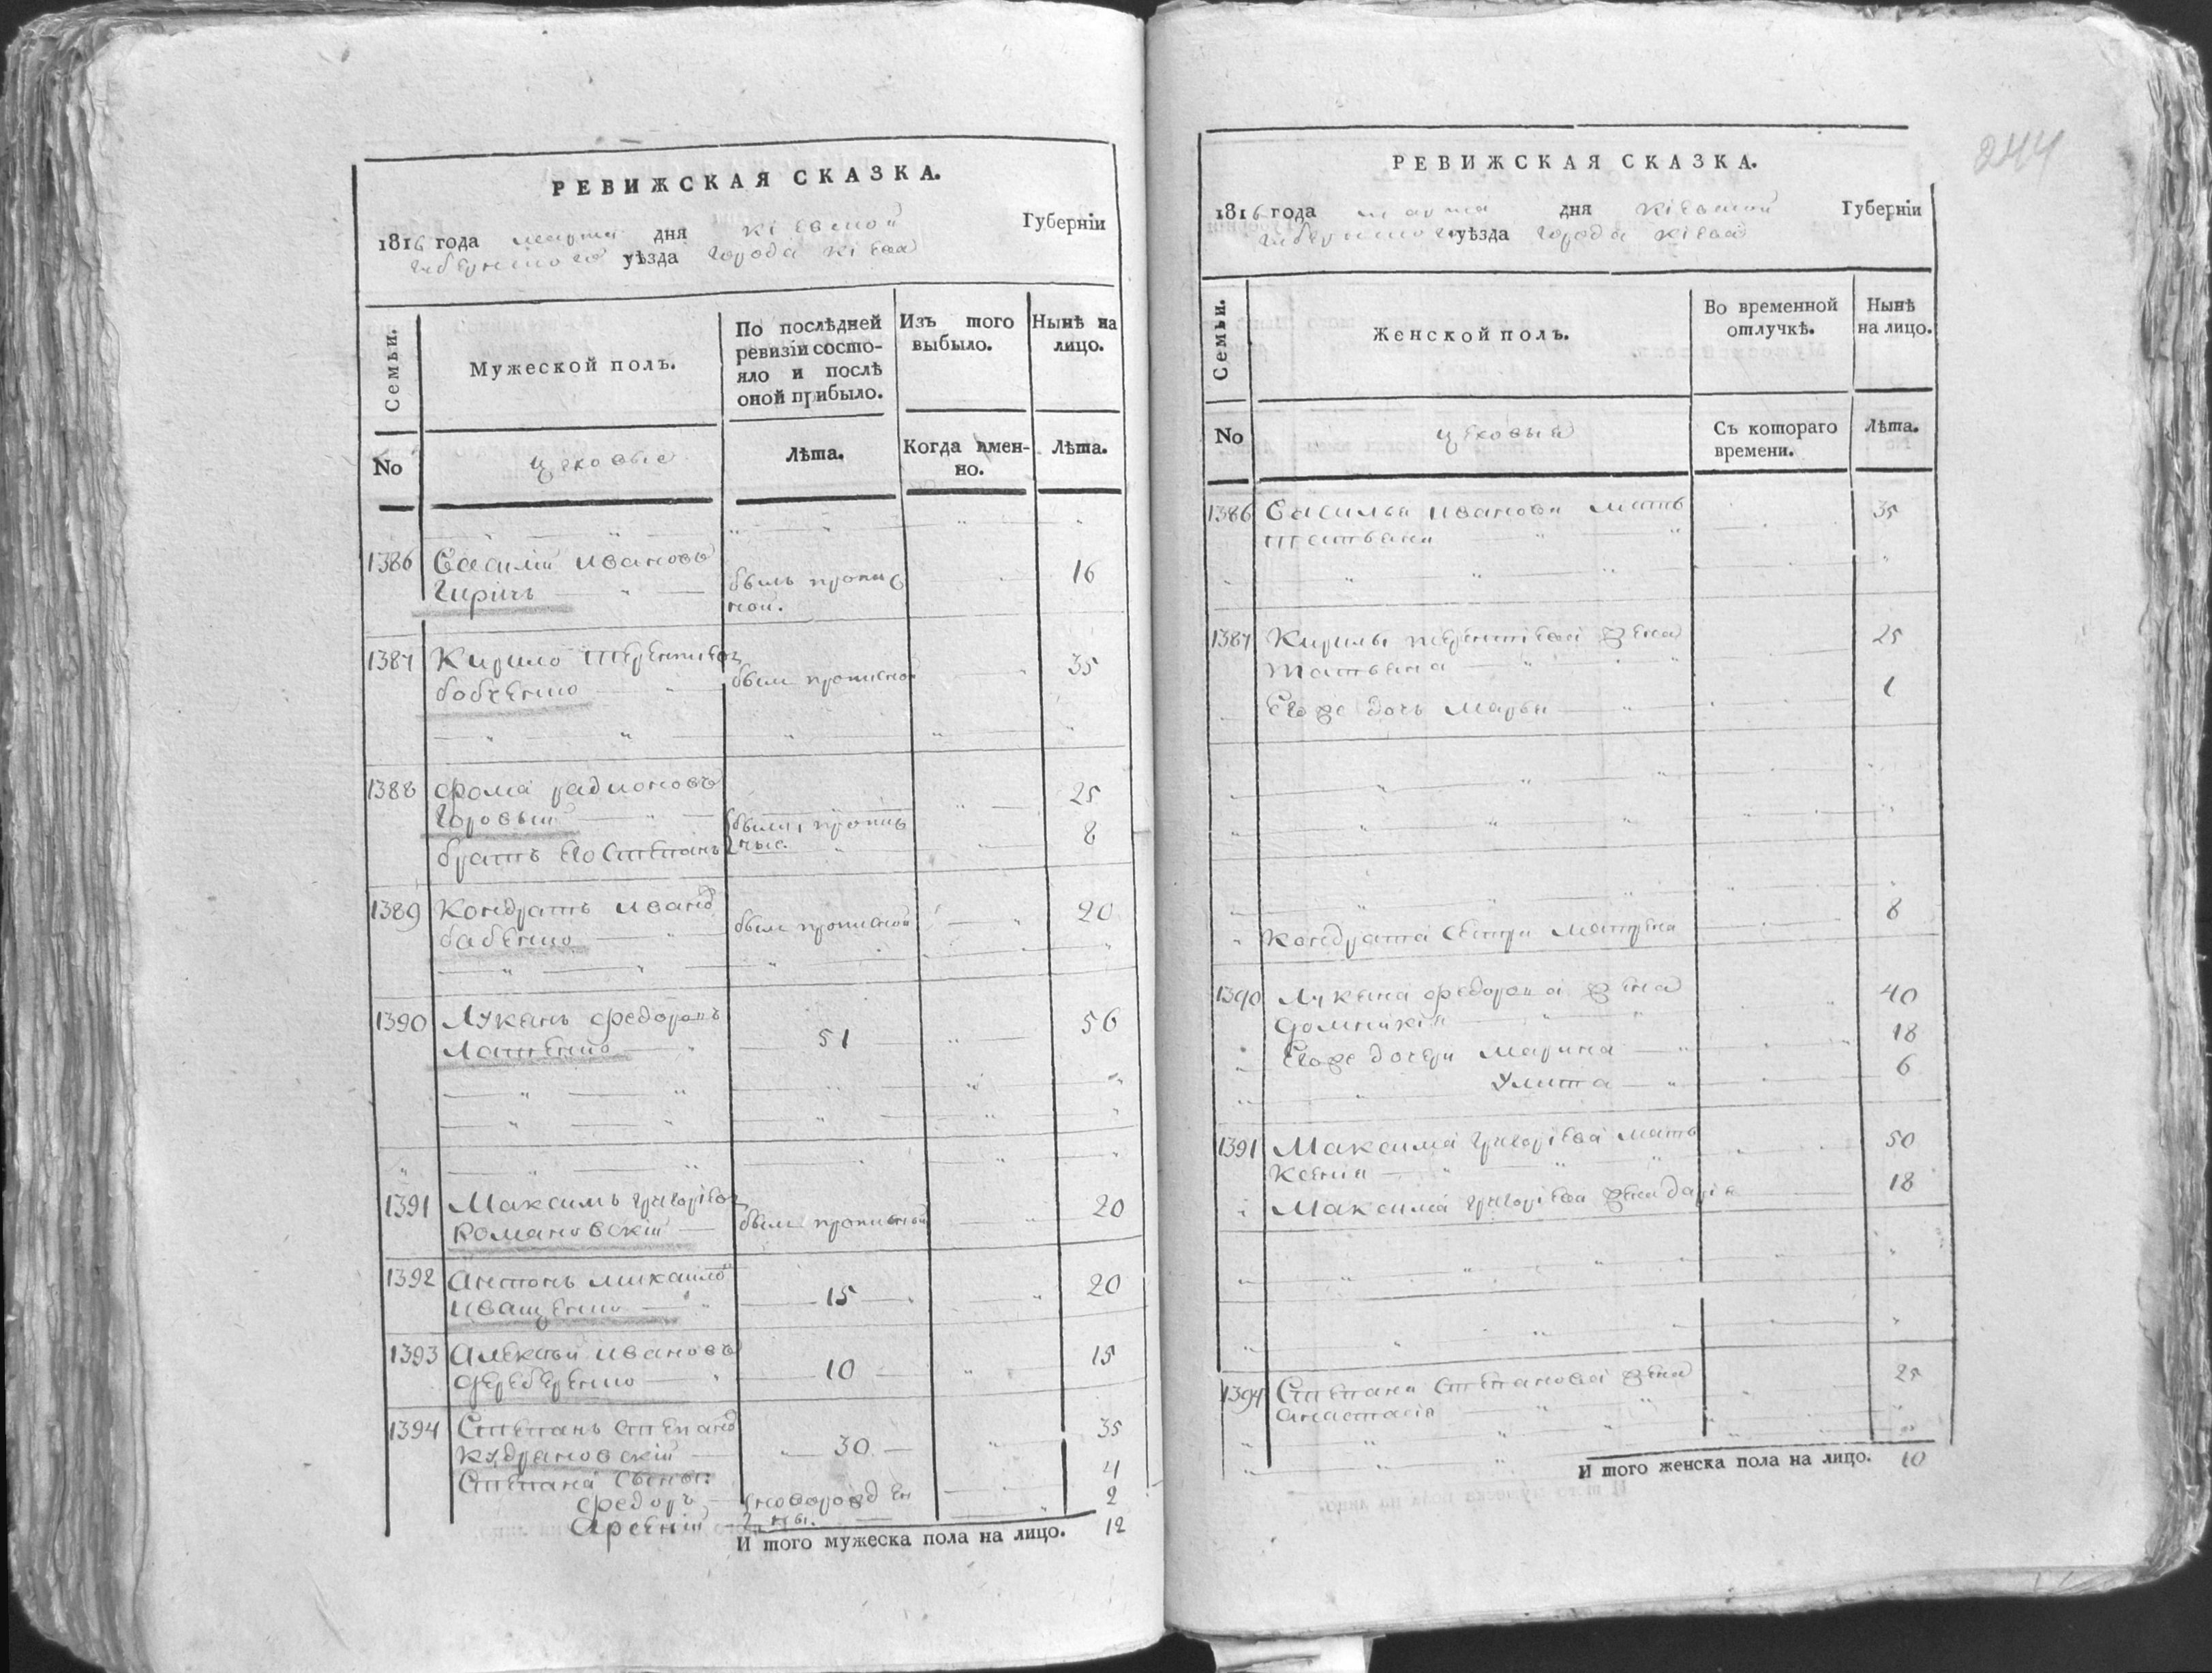 РЕВИЖСКАЯ СКАЗКА.
1816 года марта дня Кіевской Губерніи
уѣзда города Кіева
Семьи.
Мужеской полъ.
По послѣдней ревизіи состояло и послѣ оной прибыло.
Изъ того выбыло.
Нынѣ на лицо.
No
цеховые
Лѣта.
Когда имен-
но.
Лѣта.
1386 Василій Ивановъ
был пропис 16
ной.
1387 Кирило Терентиев
бобченко был прописной 35
1388 Фома Радионовъ 25
Горовый были, пропис
братъ его Степанъ ные 8
1389 Кондратъ Иванов 20
бабенко был прописной
1390 Лукянъ Федоровъ 56
51
1391 Максимъ Григоріев 20
Романовскій был прописный
1392 Антонъ Михайлов 20
Иващенко 15
1393 Алексѣй Ивановъ 15
Дереберенко 10
1394 Степанъ Степанов 35
Кудрановскій 30
Степана сыны: 4
Федоръ новорожден 2
Арсеній ны.
И того мужеска пола на лицо. 12
244
РЕВИЖСКАЯ СКАЗКА.
1816 года марта дня Кіевской Губерніи
уѣзда города Кіева
Семьи.
Женской полъ.
Во временной отлучкѣ.
Нынѣ на лицо.
No
цеховыя
Съ котораго времени.
Лѣта.
1386 Василья Иванова мать 35
Татьяна
1387 Кирилы Терентіева жена 25
Татьяна
Его же дочь Марья 1
Кондрата сестра Матрена 8
1390 Лукяна Федорова жена 40
Домникія
Его же дочери Марина 18
Улита 6
1391 Максима Григоріева мать 50
Ксенія
Максима Григоріева жена Дарія 18
1394 Степана Степанова жена 25
Анастасія
И того женска пола на лицо. 10